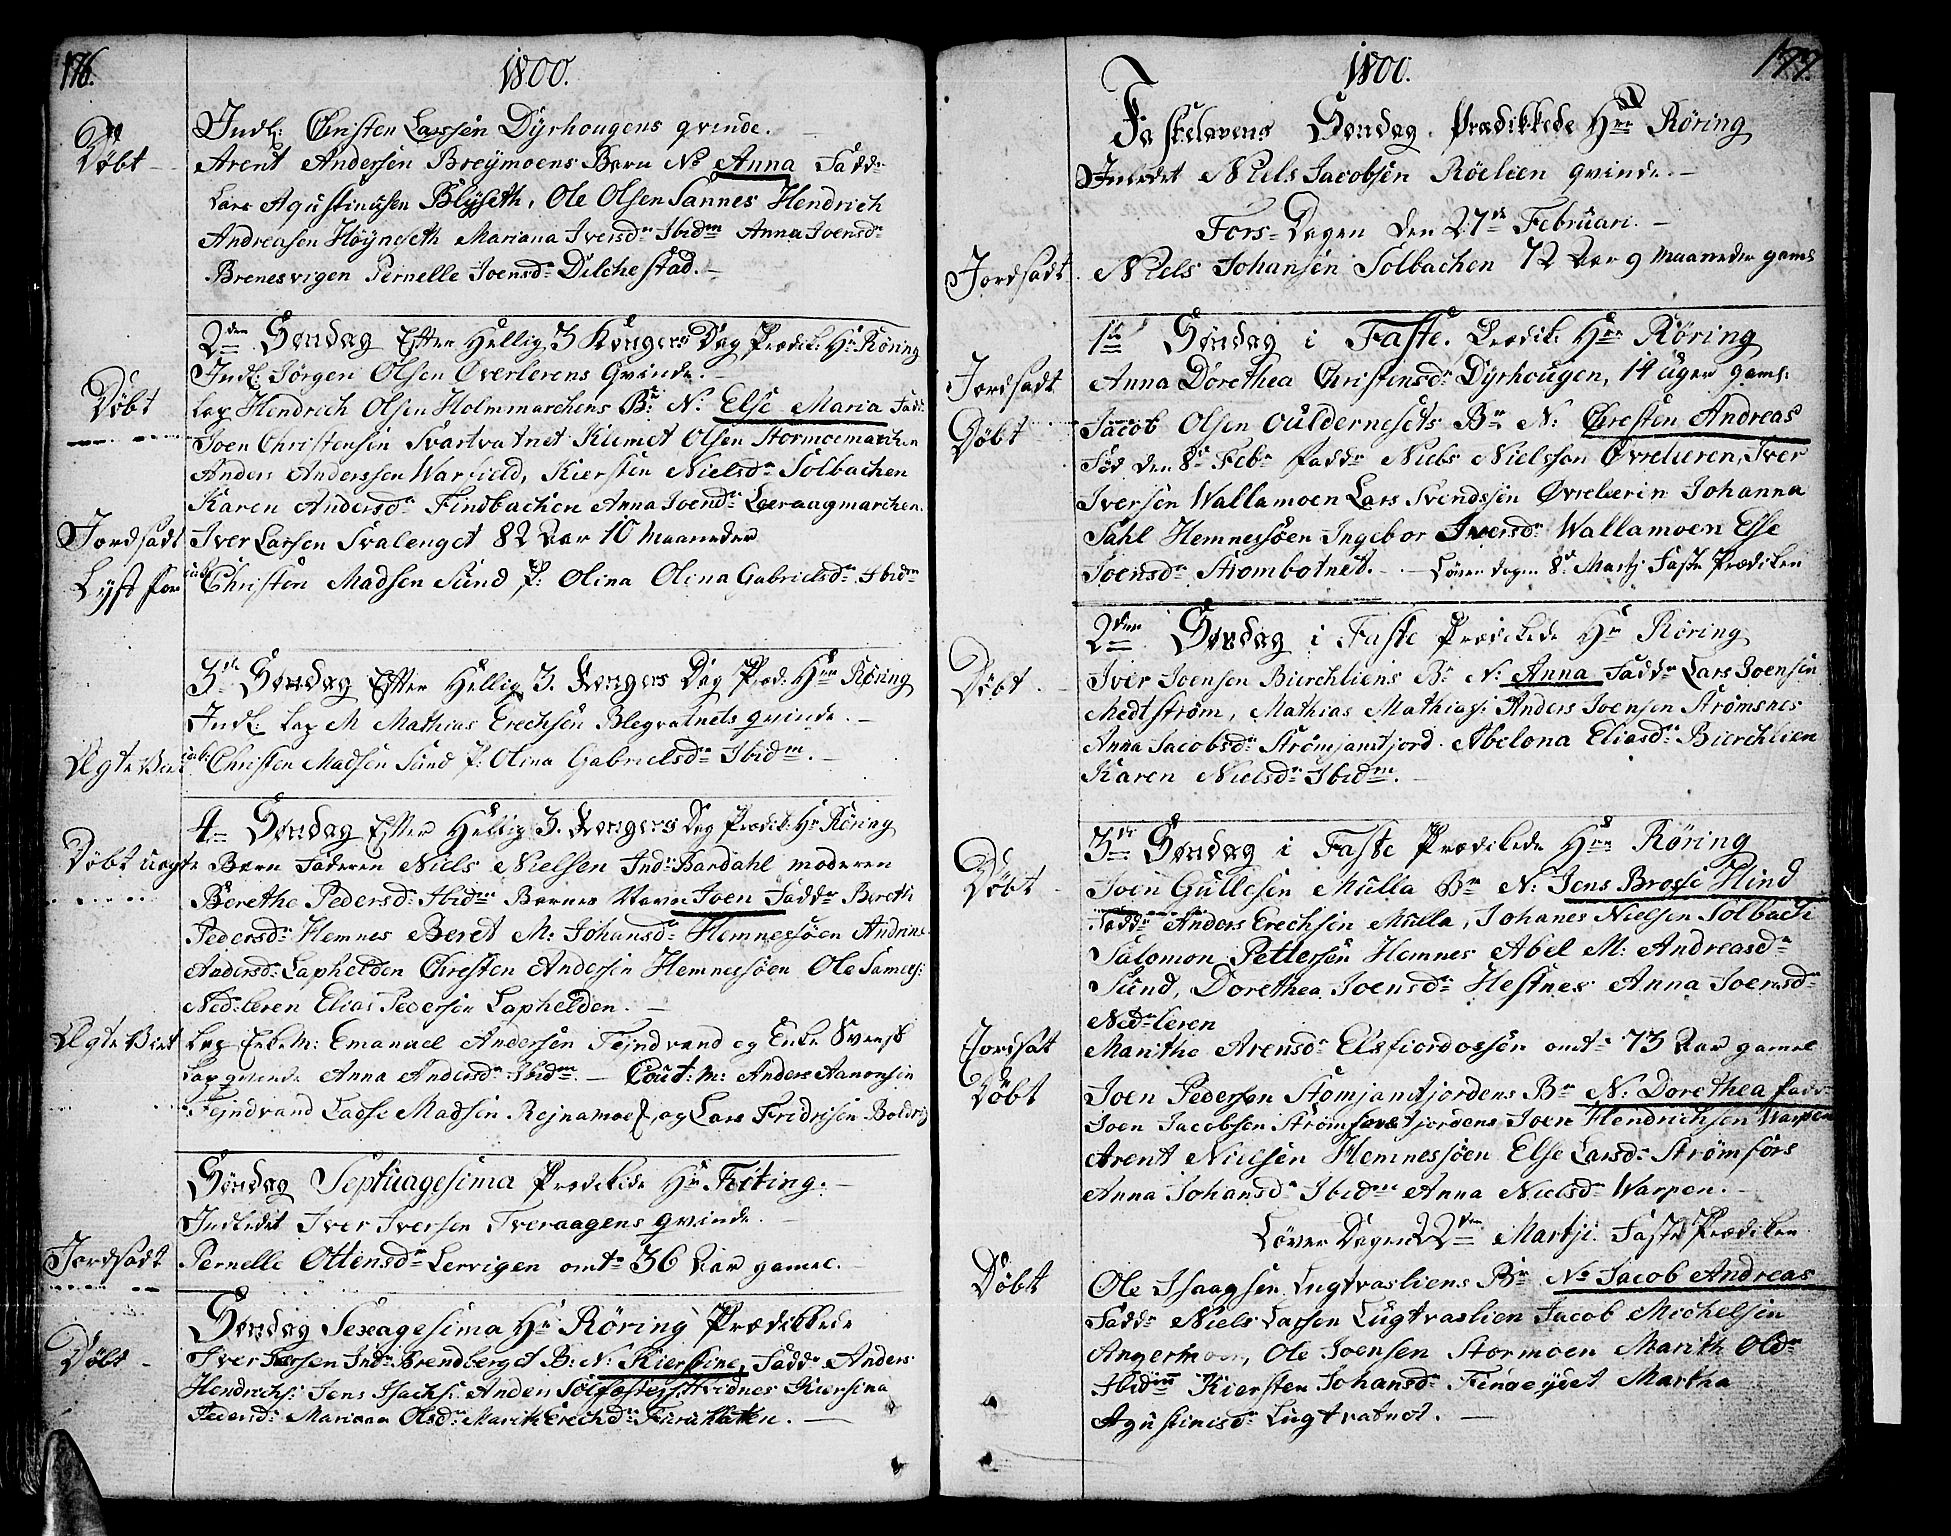 176.
1800.
Indl: Christen Larssen Dyrhougens qvinde.
Döbt
Arent Anderssen Breymoens Barn No Anna Fadd:
Lars Agustinusen Blyseth, Ole Olsen Sannes Hendrich
Andreasen Höyneseth Mariana Iversd: Ibidm Anna Joensd:
Brenesvigen Pernelle Joensd: Dilchestad.
2den Söndag Efter Hellig 3 Kongers Dag Prædik: Hr Röring
Indl: Jörgen Olsen Överlerens Qvinde.
Döbt
Lap Hendrich Olsen Holmmarchens B: N: Else Maria Fadd:
Joen Christensen Svartvatnet Klemet Olsen Stormoemarchen
Anders Anderssen Warfield, Kiersten Nielsd: Solbachen
Karen Andersd: Findbachen Anna Joensd: Leeraagmarchen.
Jordsadt
Iver Larsen Svalenget 82 Aar 10 Maaneder
Lyst for
Christen Madsen Sund P: Olina Olina Gabrielsd: Ibidm
3de Söndag Efter Hellig 3. Kongers Dag Præd: Hr Röring
Indl: Lap M Mathias Erechsen Blegvatnets qvinde.
Christen Madsen Sund P: Olina Gabrielsd: Ibidm.
4de Söndag Efter Hellig 3. Kongers Dag Prædik: Hr Röring
Döbt uægte
Barn Faderen Niels Nielsen Ind: Bardahl moderen
Berethe Pedersd: Ibidm Barnes Navn Joen Fadd: Bereth
Pedersd: Hemnes Beret M: Johansd: Hemnessöen Andrine
Andersd: Laphelden Christen Andersen Hemnessöen Ole Samuels:
Ned:leren Elias Pedersen Laphelden.
Ægte Viet
Lap Enkem: Emanuel Andersen Fejndvand og Enke Svensk
Lap qvinde Anna Andersd: Ibidm. Cout: m: Anders Aanonsen
Fejndvand Ladse Madsen Rejnamoe, og Lars Fredrisen Boldrig
Söndag Septuagesima Prædikede Hr Friting.
Indledet Iver Iversen Tveraagens qvinde.
Jordsadt
Pernelle Ottensd: Lervigen omt: 36 Aar gamel.
Söndag Sexagesima Hr Röring Prædikkede
Döbt
Iver Larsen Ind: Brendberget B: N: Kierstine, Fadd: Anders
Hendrichs: Jens Isachs: Anders Solfœsters Hvidnes Kiersina
Pedersd: Mariann Olsd: Marith Erechd: Furuhatten.
177.
1800.
Fastelavens Söndag. Prædikkede Hr Röring
Indledet Niels Jacobsen Röelien qvinde.
Tors-Dagen den 27de Februari.
Jordsadt
Niels Johansen Solbachen 72 Aar 9 Maaneder gaml
1te Söndag i Faste. Prædik: Hr Röring
Jordsadt
Anna Dorethea Christensd: Dyrhougen, 14 uger gaml:
Döbt
Jacob Olsen Ouldernesets Bn N: Christen Andreas
Föd den 8de Febr Fadd: Niels Nielssen Övreleeren, Iver
Iversen Wallamoen Lars Svendssen Övreleerin Johanna
Dahl Hemnessöen Ingebor Iversd: Wallamoen Else
Joensd: Strombotnet. Löverdagen 8de Martj Faste Prædiken
2den Söndag i Faste Prædikede Hr Röring
Döbt
Iver Joensen Bierchliens B: N: Anna Fadd: Lars Joensen
Medtström, Mathias Mathias: Anders Joensen Strömsnes
Anna Jacobsd: Strömjamtjord. Abelona Eliasd: Bierchlien
Karen Nielsd: Ibidm.
3de Söndag i Faste Prædikede Hr Röring
Döbt
Joen Gullesen Mulla Bn N: Jens Brosse Hind
Fadd: Anders Erechsen Mulla, Johanes Nielsen Solbach
Salomon Pettersen Hemnes Abel M: Andreasd:
Sund, Dorethea Joensd: Hestnes Anna Joensd:
Ned:leren
Jordsat
Marithe Arensd: Elsfiordossen omt: 73 Aar gamel
Döbt
Joen Pedersen Stomjamtjordens Bn N: Dorethea Fadd:
Joen Jacobsen Strömjamtjordens Joen Hendrichsen Warpen
Arent Nielsen Hemnessöen Else Larsd: Strömfors
Anna Johansd: Ibidm Anna Nielsd: Warpen.
Löver Dagen 22den Martji. Faste Prædiken
Döbt
Ole Isaagsen Lugtvasliens Bn No Jacob Andreas
Fadd: Niels Larsen Lugtvaslien Jacob Michelsen
Angermoen, Ole Joensen Stormoen Marith Olsd:
Ibidm Kiersten Johansd: Fineydet Martha
Agustinisd: Lugtvatnet.